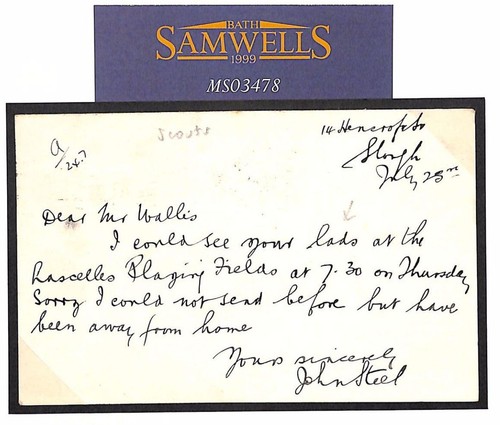 BATH
SAMWELLS
1999
MS03478
14 Hencroft St
Slough
July 23rd
a/247
Dear Mr Wallis
I could see your lads at the
Lascelles Playing Fields at 7.30 on Thursday
Sorry I could not send before but have
been away from home
Yours sincerely
John Steel